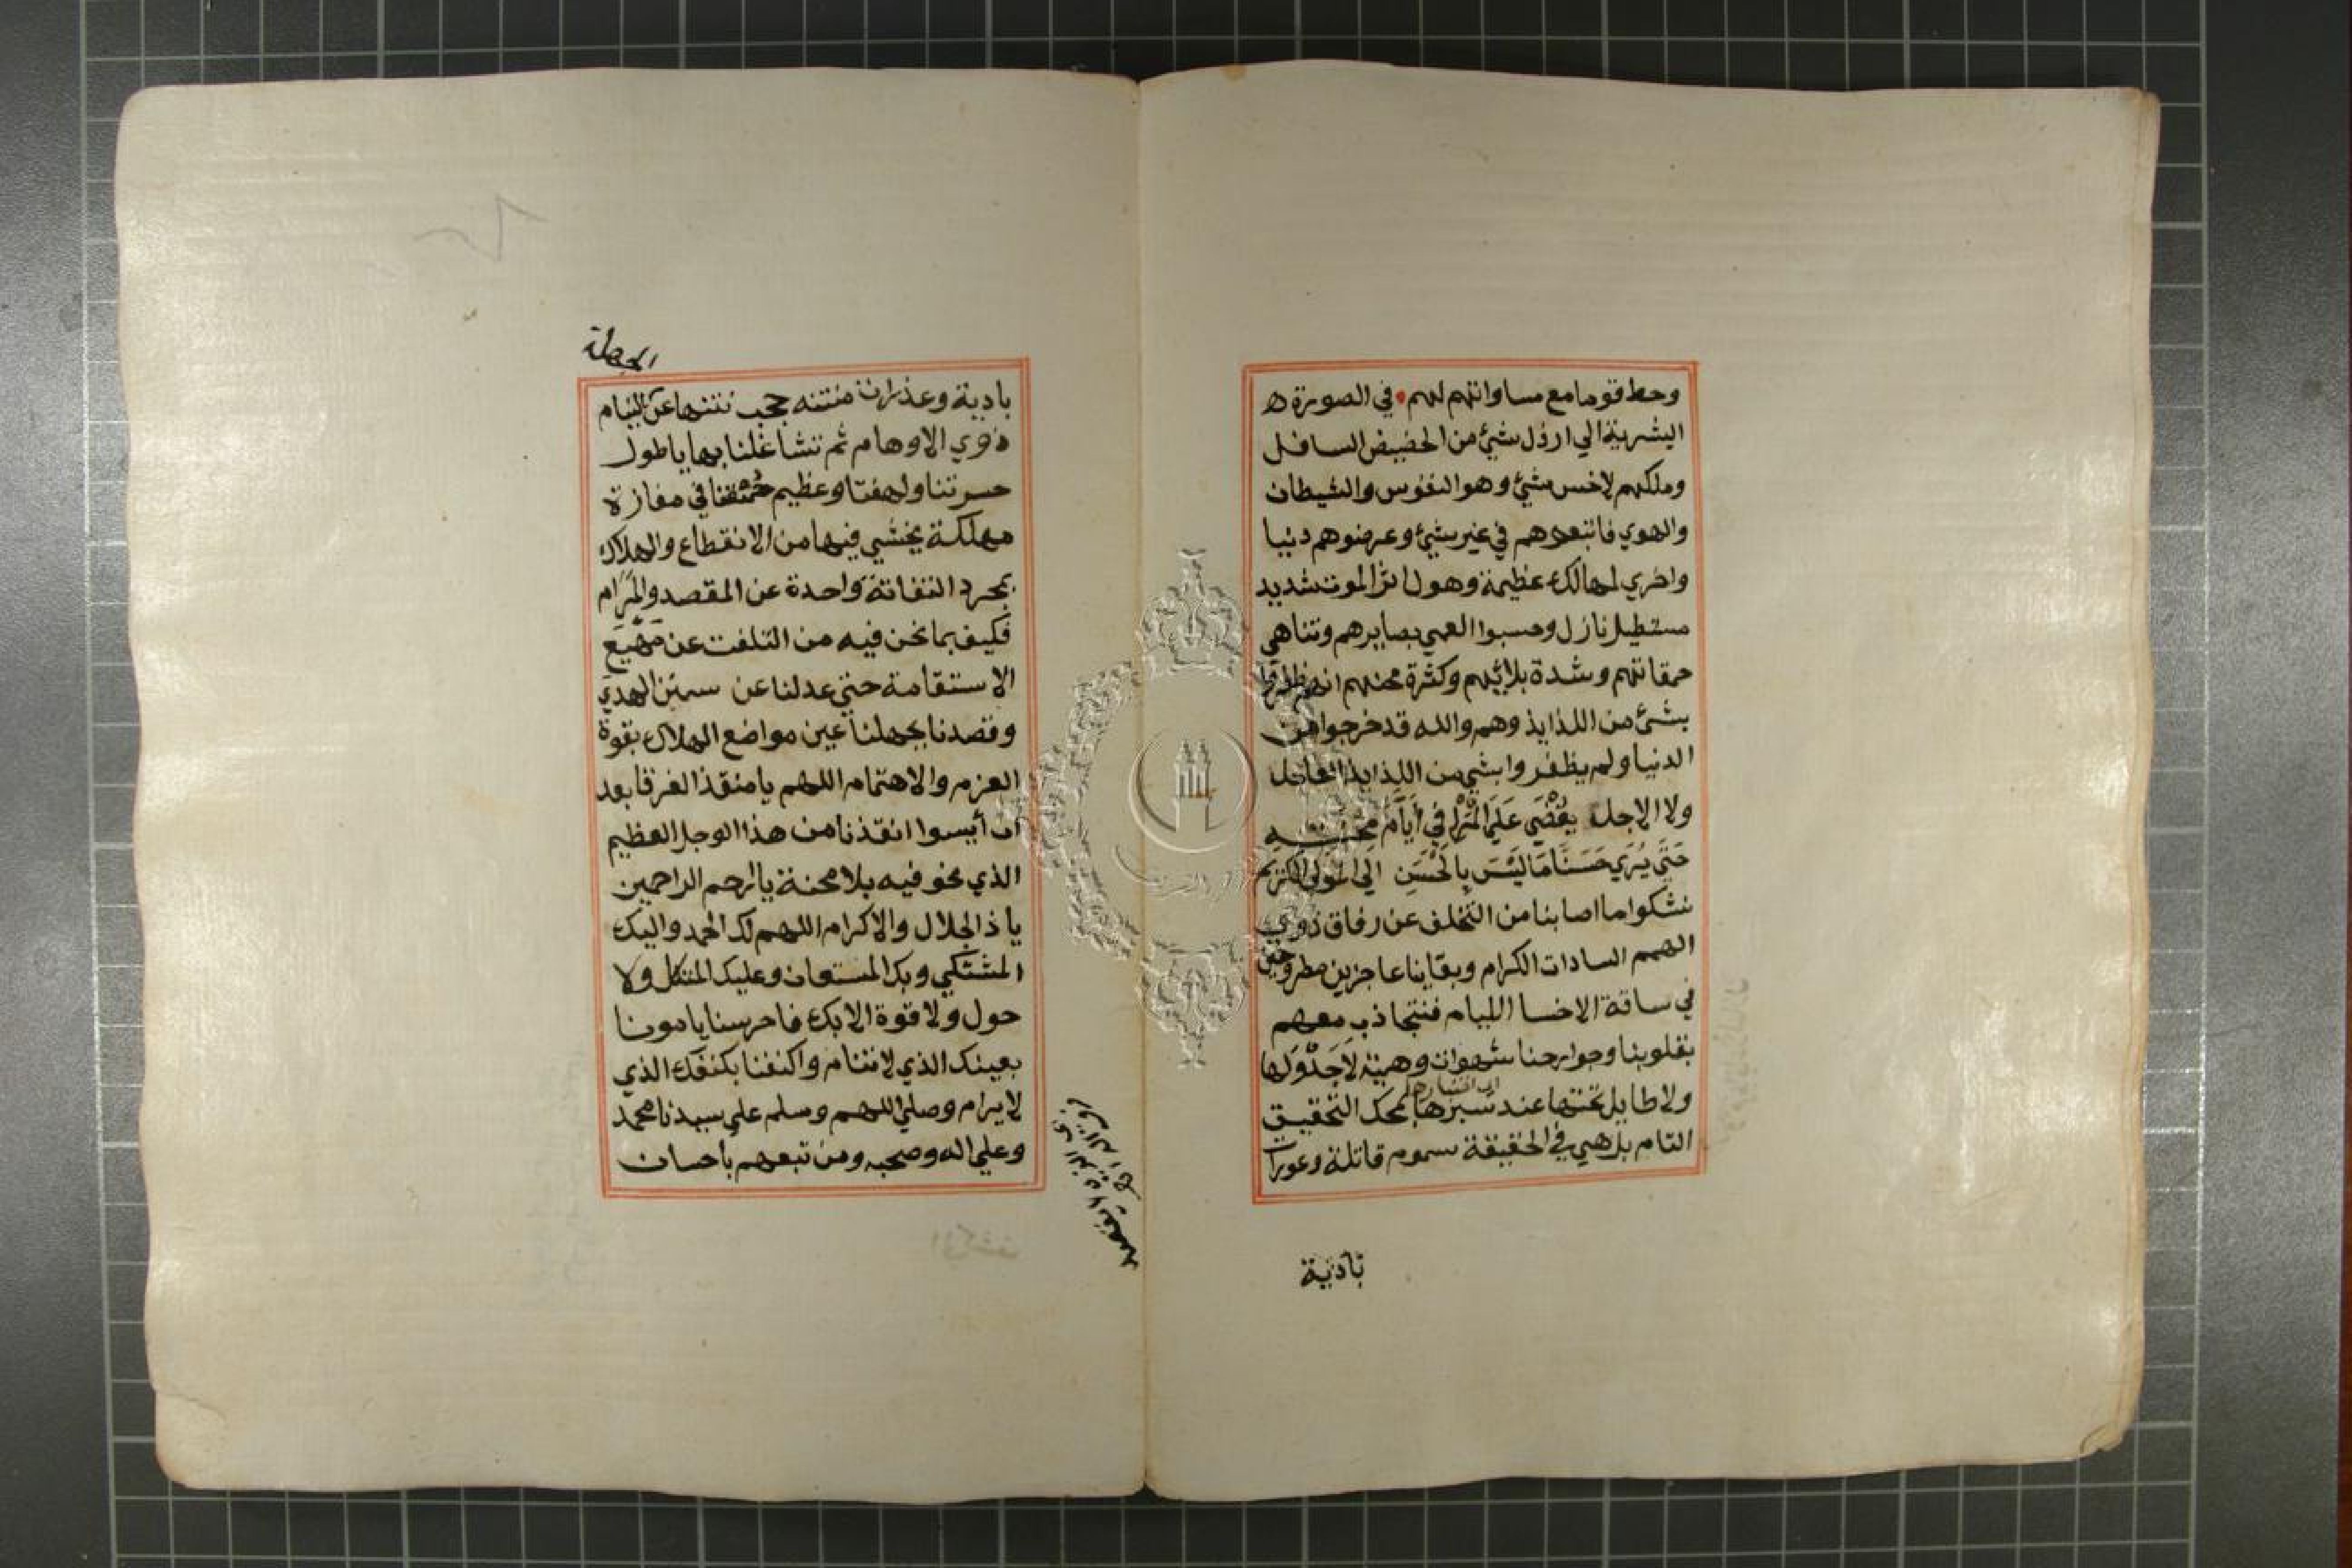 وحط قوما مع مساواتهم لهم في الصورة
البشرية الي ارذل شيئ من الحضيض السافل
وملكهم لاخس شيئ وهو النفوس والشيطان
والهوي فاتبعوهم في غير شيئ وعرضوهم دنيا
واخري لمهالك عظيمة وهول اثر الموت شديد
مستطيل نازل وحسبوا لعمي بصايرهم وتناهي
حمقاتهم وشدة بلائهم وكثرة محنهم انهم ظفروا
بشئ من اللذايذ وهم والله قد خرجوا من
الدنيا ولم يظفروا بشي من اللذايذ العاجل
ولا الاجل يُقْضَي عَلَي المَرْءِ فِي أَيَّامِ مِحْنَتِهِ
حَتَّي يُرَي حَسَنًا مَا لَيْسَ بِالحَسَنِ الي المولي الكريم
نشكوا ما اصابنا من التخلف عن رفاق ذوي
الهمم السادات الكرام وبقاينا عاجزين مطروحين
في ساقة الاخسا الليام فنتجاذب معهم
بقلوبنا وجوارحنا شهوات وهمية لا جَدْوَي لها
ولا طايل تحتها عند سبرها بمحك التحقيق
التام بل هي في الحقيقة سموم قاتلة وعورات
بادية
المهملة
بادية وعذرات منتنه حجب نتنها عن النيام
ذوي الاوهام ثم تشاغلنا بها يا طول
حسرتنا ولهفتنا وعظيم في مفازة
مهلكة يخشي فيها من الانقطاع والهلاك
بمجرد التفاتة واحدة عن المقصد والمَرَام
فكيف بما نحن فيه من التلفت عن مَهْيَعِ
الاستقامة حتي عدلنا عن سنن الهدي
وقصدنا بجهلنا عين مواضع الهلاك بقوة
العزم والاهتمام اللهم يا منقذ الغرقا بعد
ان أيسوا انقذنا من هذا الوحل العظيم
الذي نحن فيه بلا محنة يا ارحم الراحمين
يا ذا الجلال والاكرام اللهم لك الحمد واليك
المشتكي وبك المستعان وعليك المتكل ولا
حول ولا قوة الا بك فاحرسنا يا مونا
بعينك الذي لا تنام واكنفنا بكنفك الذي
لا يرام وصلي اللهم وسلم علي سيدنا محمد
وعلي اله وصحبه ومن تبعهم باحسان